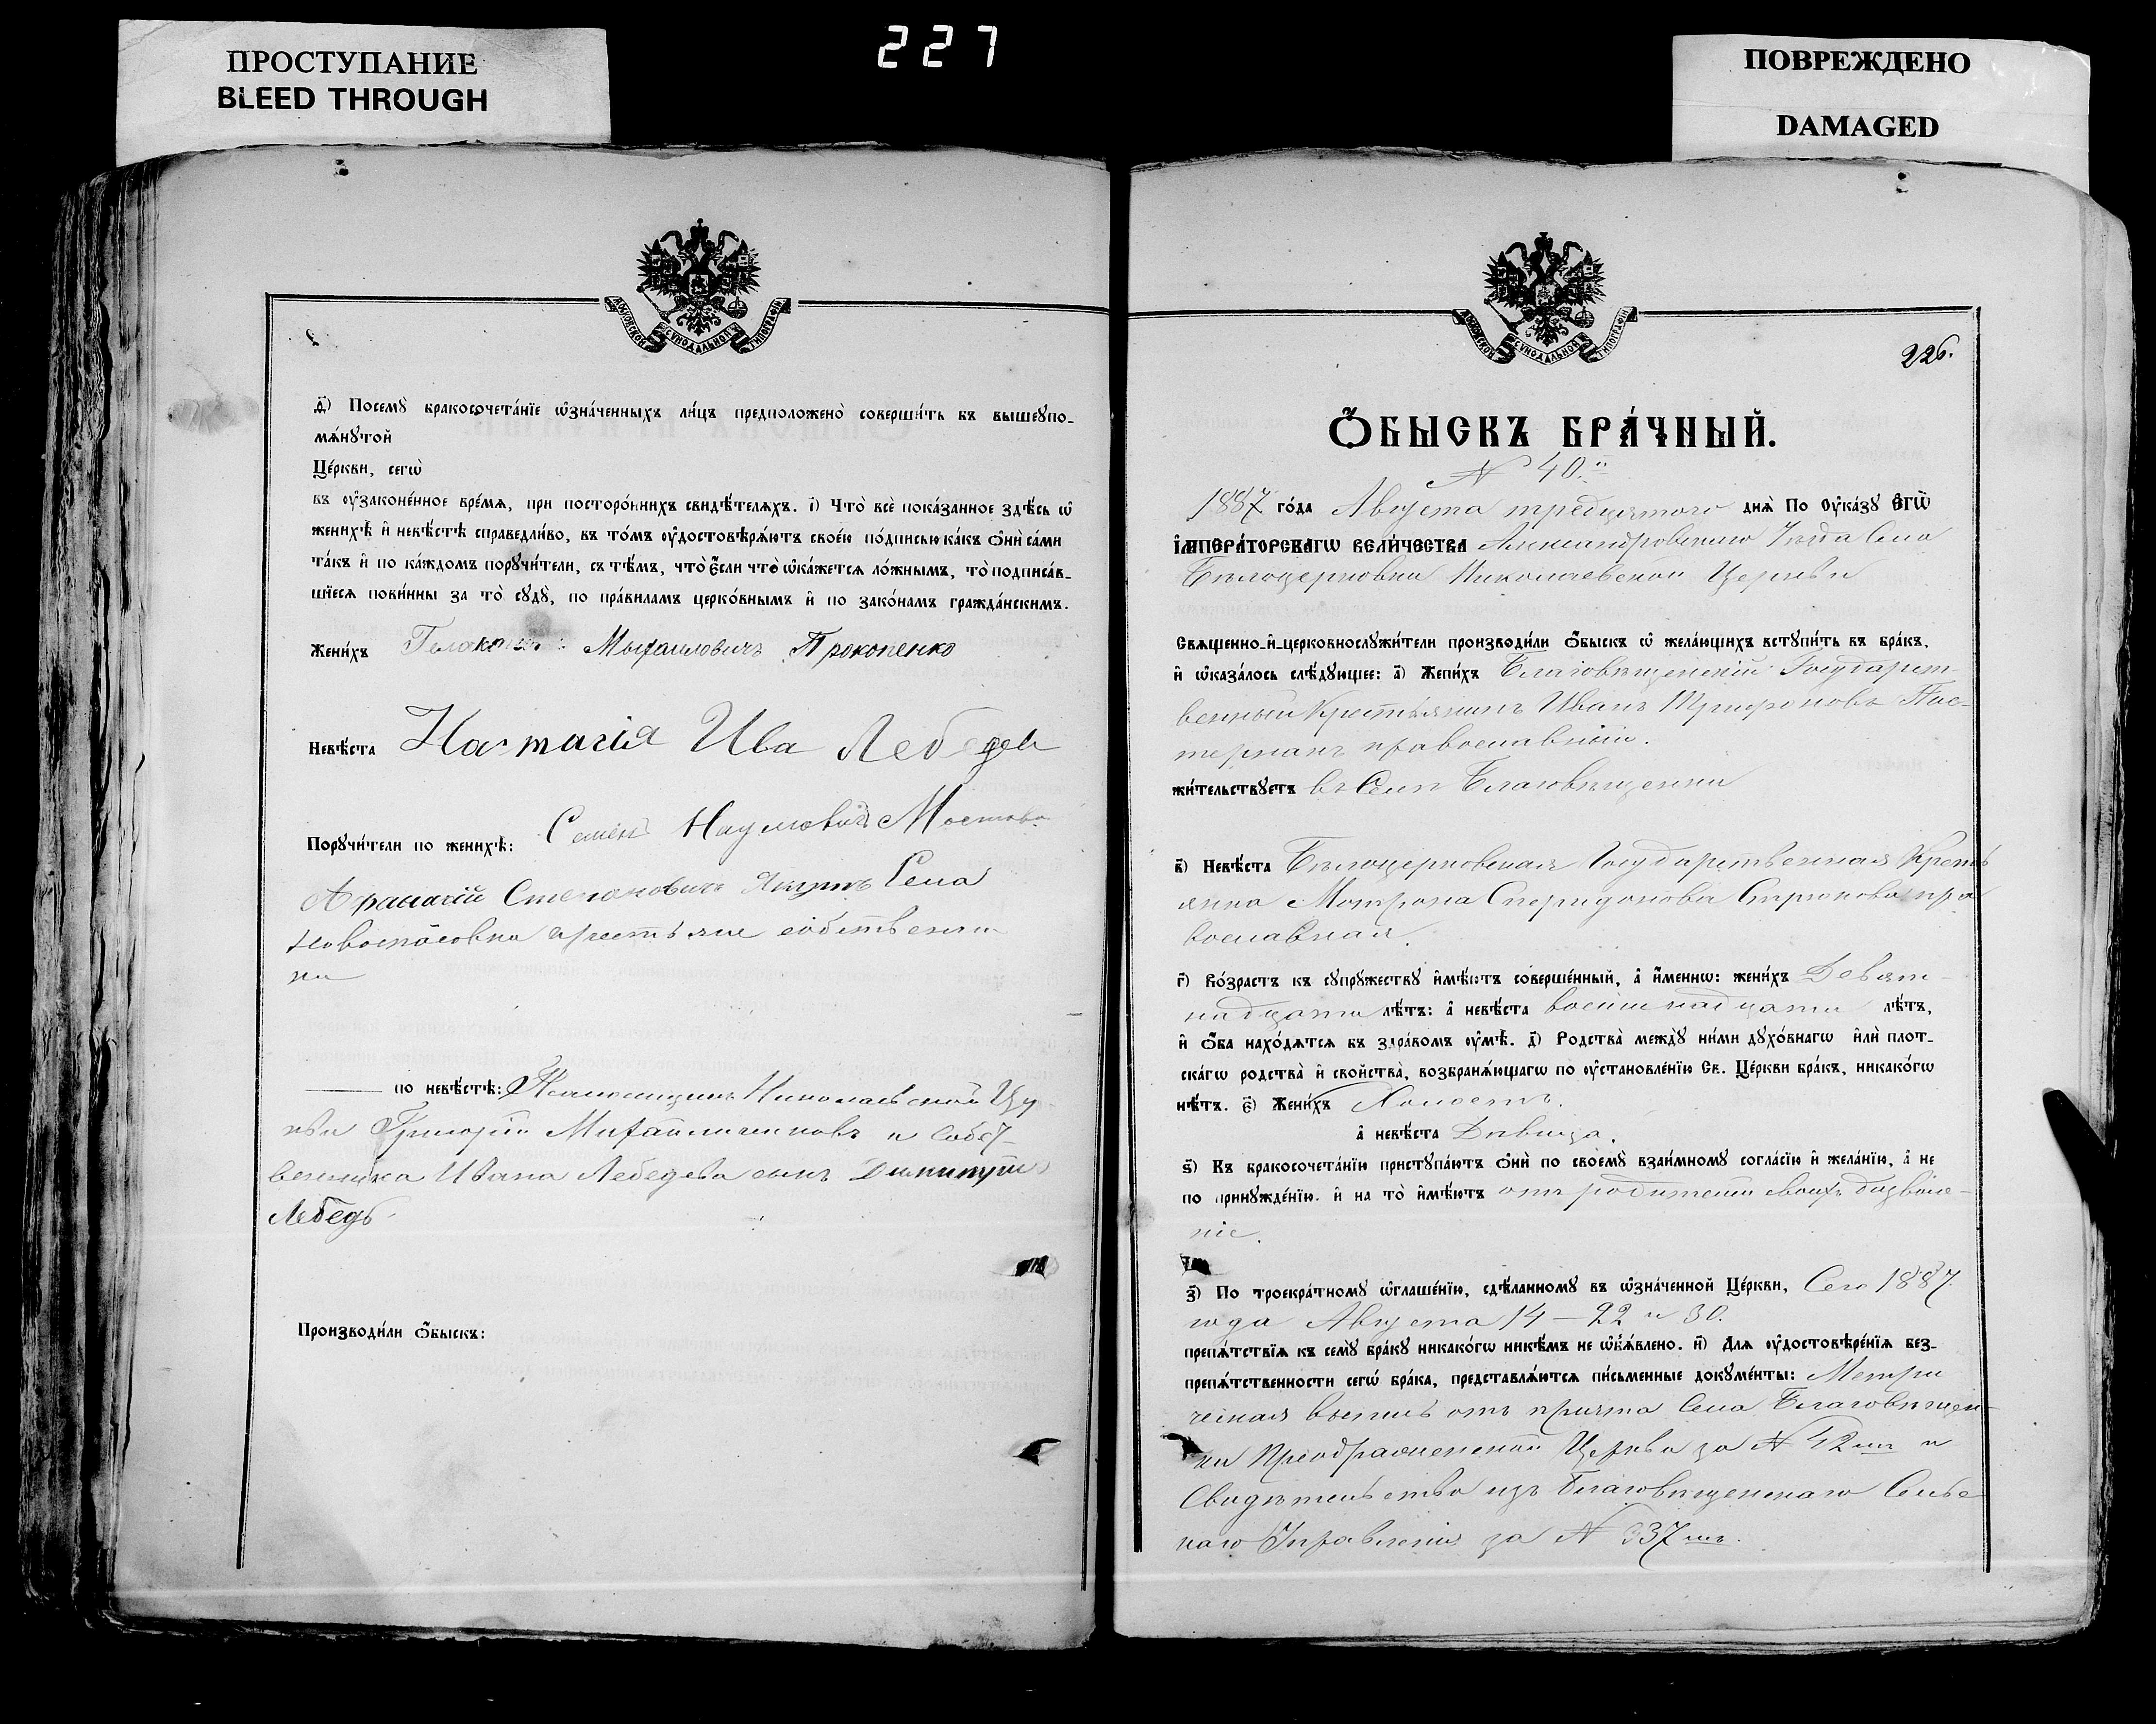 ПРОСТУПАНИЕ
BLEED THROUGH
227
ПОВРЕЖДЕНО
DAMAGED
МОСКОВСКОЙ СѴНОДАЛЬНОЙ ТИПОГРАФІИ
д҃) Посемꙋ̀ бракосочета́нїе ѡ҆зна́ченныхъ ли́цъ предположено̀ соверши́ть въ вышеꙋпо-
мѧ́нꙋтой
Це́ркви, сегѡ̀
въ ᲂу҆законе́нное вре́мѧ, при посторо́ннихъ свидѣ́телѧхъ. і҃) Что̀ всѐ пока́занное здѣ́сь ѡ҆
женихѣ̀ и҆ невѣ́стѣ справедли́во, въ то́мъ ᲂу҆достовѣрѧ́ютъ свое́ю по́дписью ка́къ ѻ҆нѝ са́ми
та́къ и҆ по ка́ждомъ порꙋчи́тели, съ тѣ́мъ, что̀ є҆́сли что̀ ѡ҆ка́жетсѧ ло́жнымъ, то̀ подписа́в-
шїесѧ пови́нны за то̀ сꙋдꙋ̀, по пра́виламъ церко́внымъ и҆ по зако́намъ гражда́нскимъ.
Жени́хъ Мыхаиловичъ Прокопенко
Невѣ́ста Настасія Ива Лебедева
Порꙋчи́тели по женихѣ̀: Семенъ Наумовичъ Мостово
Афанасій Степановичъ Якутъ Села
Новоспасовки крестьяне собственни
ки
по невѣ́стѣ: Псаломщикъ Николаевской Цер
кви Григорій Михайличенковъ и собст-
венника Ивана Лебедева сынъ Димитрій
Лебедь
Производи́ли ѻ҆́быскъ:
МОСКОВСКОЙ СѴНОДАЛЬНОЙ ТИПОГРАФІИ
226.
Ѻ҆́БЫСКЪ БРА́ЧНЫЙ.
N 40.й
1887 го́да Августа тридцятого днѧ̀ По Оу҆ка́зꙋ Є҆ГѠ̀
І҆МПЕРА́ТОРСКАГѠ ВЕЛИ́ЧЕСТВА Александровского Уѣзда Села
Бѣлоцерковки Николаевской Церкви
Свѧще́нно-и҆-церковнослꙋжи́тели производи́ли ѻ҆́быскъ ѡ҆ жела́ющихъ встꙋпи́ть въ бра́къ,
и҆ ѡ҆каза́лось слѣ́дꙋющее: а҃) Жени́хъ Благовѣщенскій Государст-
венный Крестьянинъ Иванъ Трифоновъ Пас-
тернакъ православный.
жи́тельствꙋетъ въ Селѣ Благовѣщенки
в҃) Невѣ́ста Бѣлоцерковская Государственная Кресть
янка Мотрона Спиридонова Спрюкова пра
вославная.
г҃) Во́зрастъ къ сꙋпрꙋ́жествꙋ и҆мѣ́ютъ соверше́нный, а҆ и҆́меннѡ: жени́хъ Девят-
надцати лѣ́тъ: а҆ невѣ́ста восимнадцати лѣ́тъ,
и҆ ѻ҆́ба нахо́дѧтсѧ въ здра́вомъ ᲂу҆мѣ̀. д҃) Родства̀ междꙋ̀ ни́ми дꙋхо́внагѡ и҆лѝ плот-
ска́гѡ родства̀ и҆ свойства̀, возбранѧ́ющагѡ по ᲂу҆становле́нїю Св. Це́ркви бра́къ, никако́гѡ
нѣ́тъ. є҃) Жени́хъ Холостъ.
а҆ невѣ́ста Дѣвица.
ѕ҃) Къ бракосочета́нїю пристꙋпа́ютъ ѻ҆нѝ по своемꙋ̀ взаи́мномꙋ согла́сїю и҆ жела́нїю, а҆ не
по принꙋжде́нїю. и҆ на то̀ и҆мѣ́ютъ отъ родителей своихъ дозволе-
ніе.
з҃) По троекра́тномꙋ ѡ҆глаше́нїю, сдѣ́ланномꙋ въ ѡ҆зна́ченной Це́ркви, Сего 1887
года Августа 14 – 22 и 30.
препѧ́тствїѧ къ семꙋ̀ бра́кꙋ никако́гѡ никѣ́мъ не ѡ҆б̾ѧ́влено. и҃) Длѧ ᲂу҆достовѣре́нїѧ без-
препѧ́тственности сегѡ̀ бра́ка, представлѧ́ютсѧ пи́сьменные докꙋме́нты: Метри
ческая выпись отъ причта Села Благовѣщен-
ки Преображенской Церкви за N 42мъ и
Свидѣтельство изъ Благовѣщенского Сельс
каго Управленія за N 337мъ.